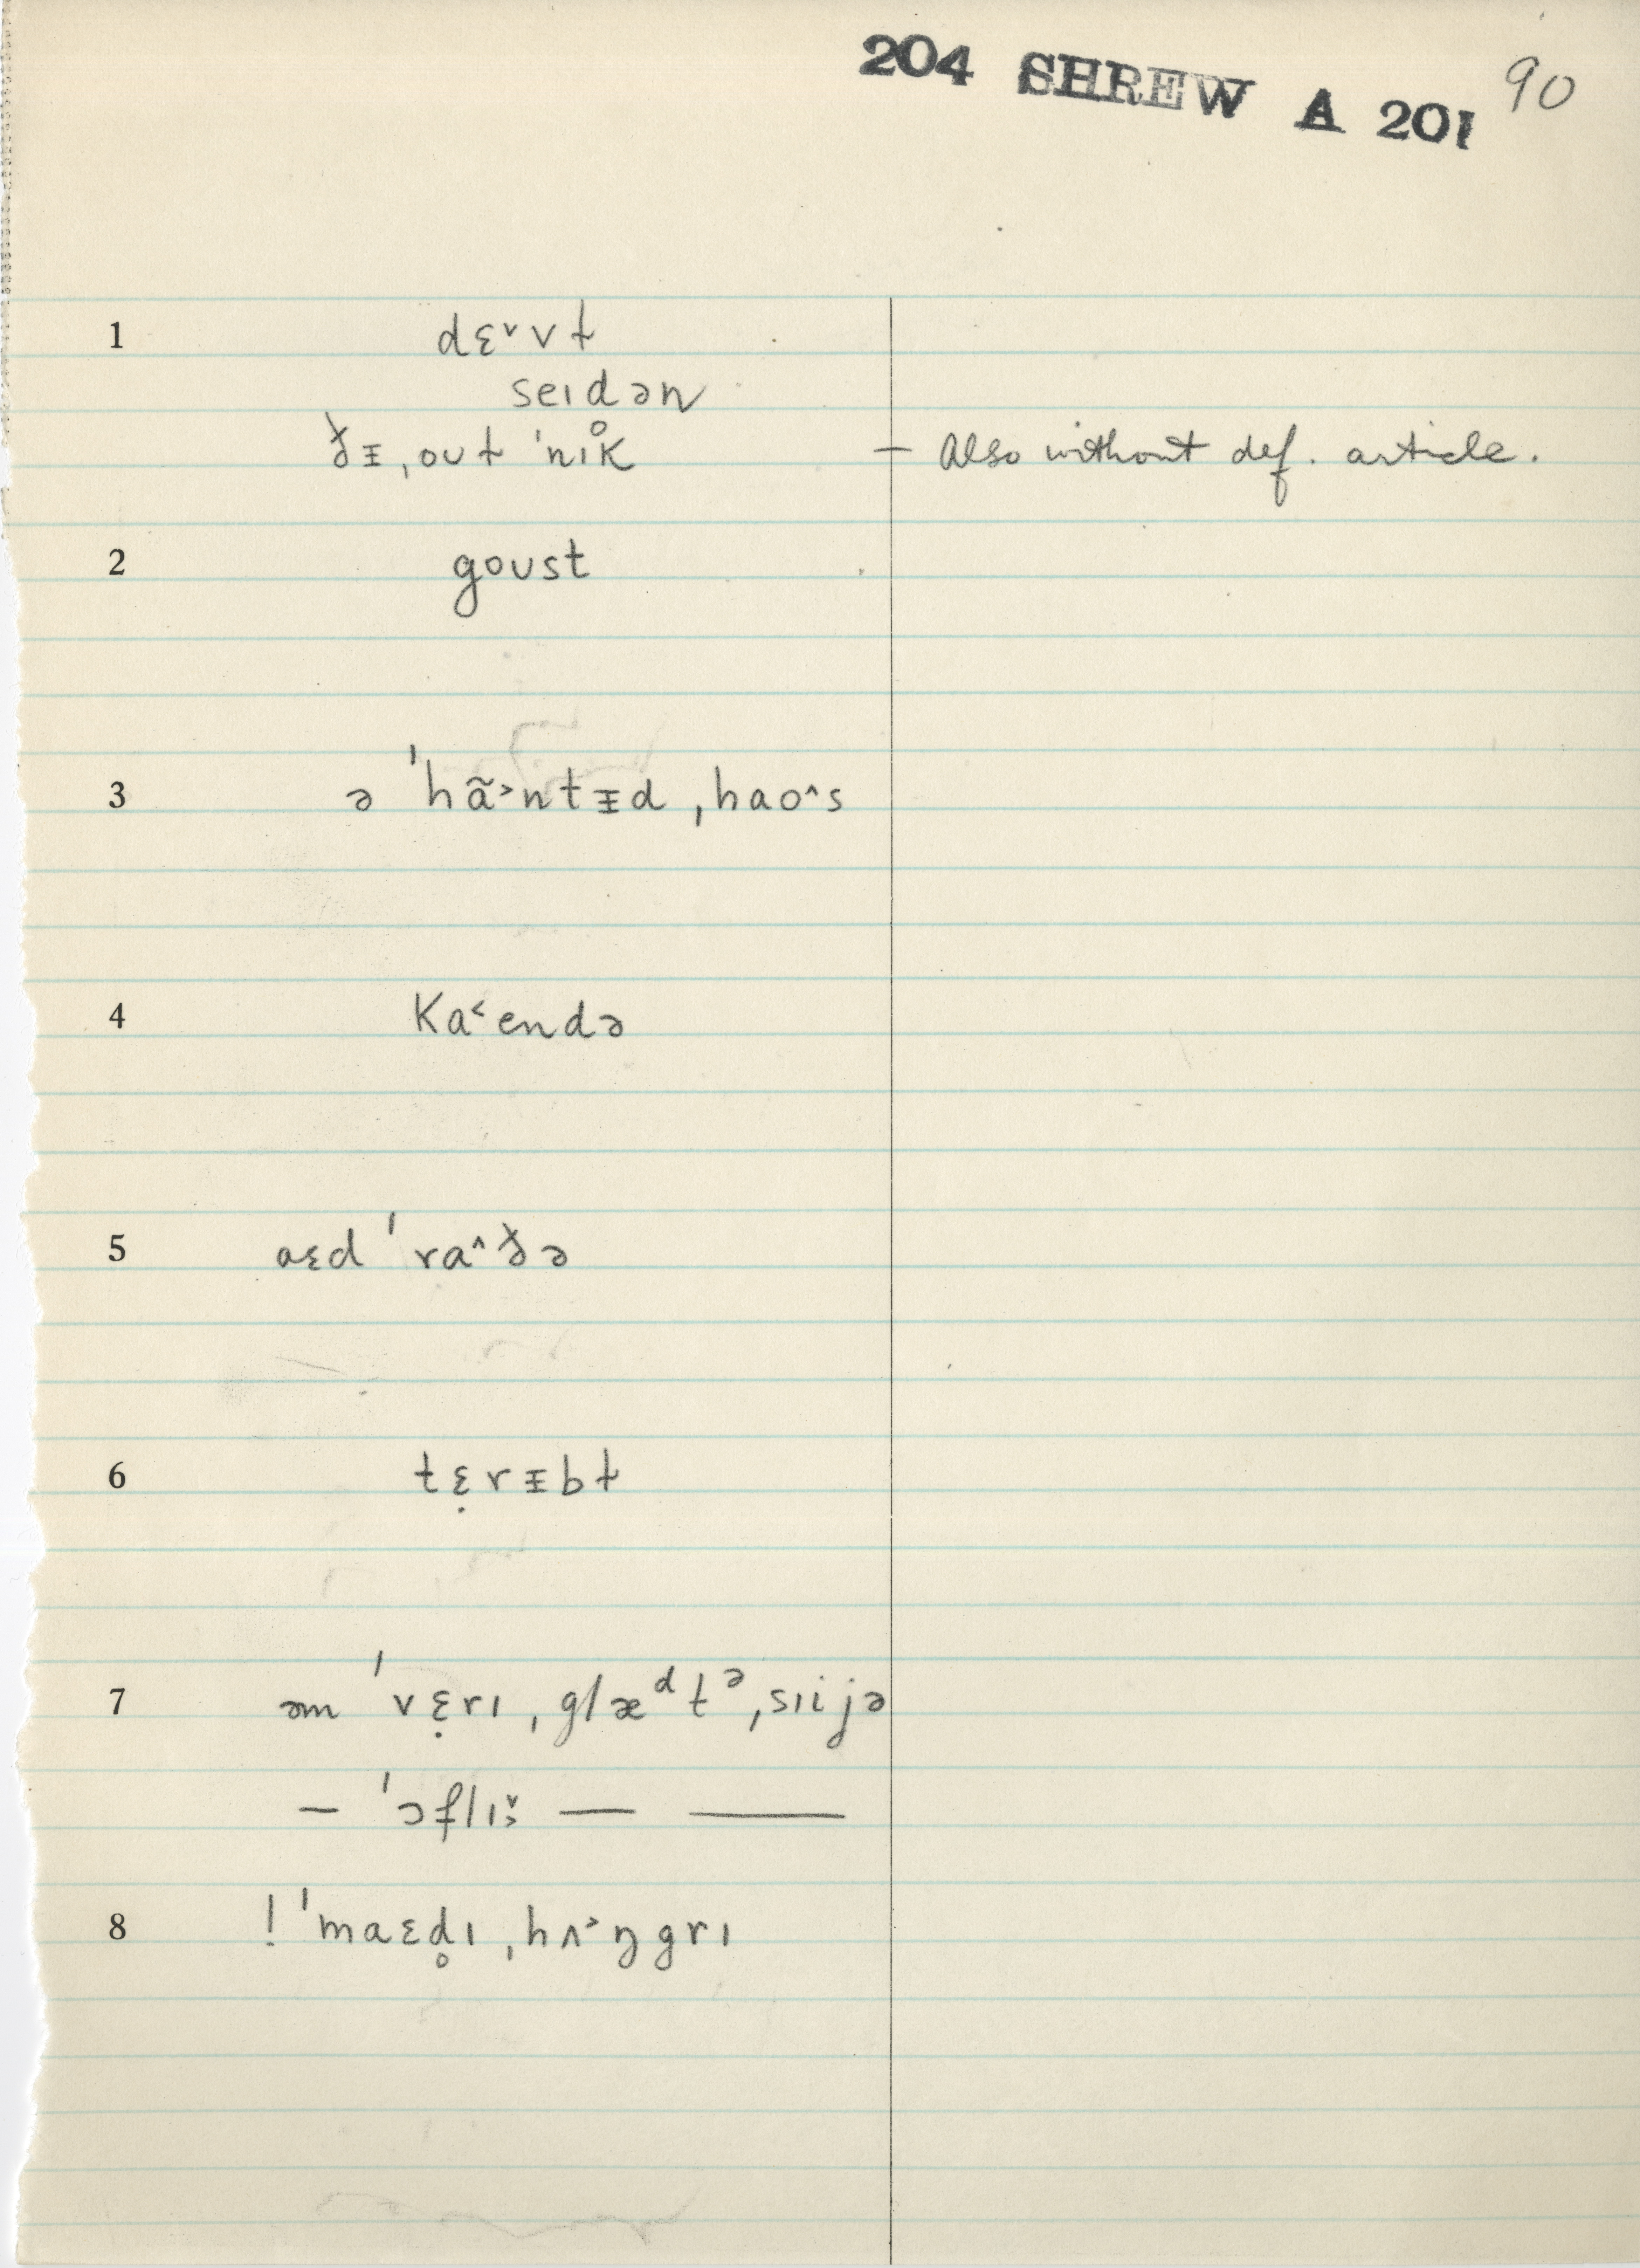 204 SHREW A 201 90
1 dɛ˅vɫ
seɪdən
ðᵻ ˌoʊɫ ˈnɪk̊ — Also without def. article.
2 goʊst
3 ə ˈhɑ̃˃ntᵻd ˌhaoˆs
4 ka˂endə
5 aɛd ˈraˆðə
6 tɛ̣rᵻbɫ
7 əm ˈvɛ̣rɪ ˌglæᵈtᵊ ˌsɪijə
— ˈɔflɪ˅˒ — —
8 ! ˈmaɛd̥ɪ ˌhʌ˃ŋgrɪ